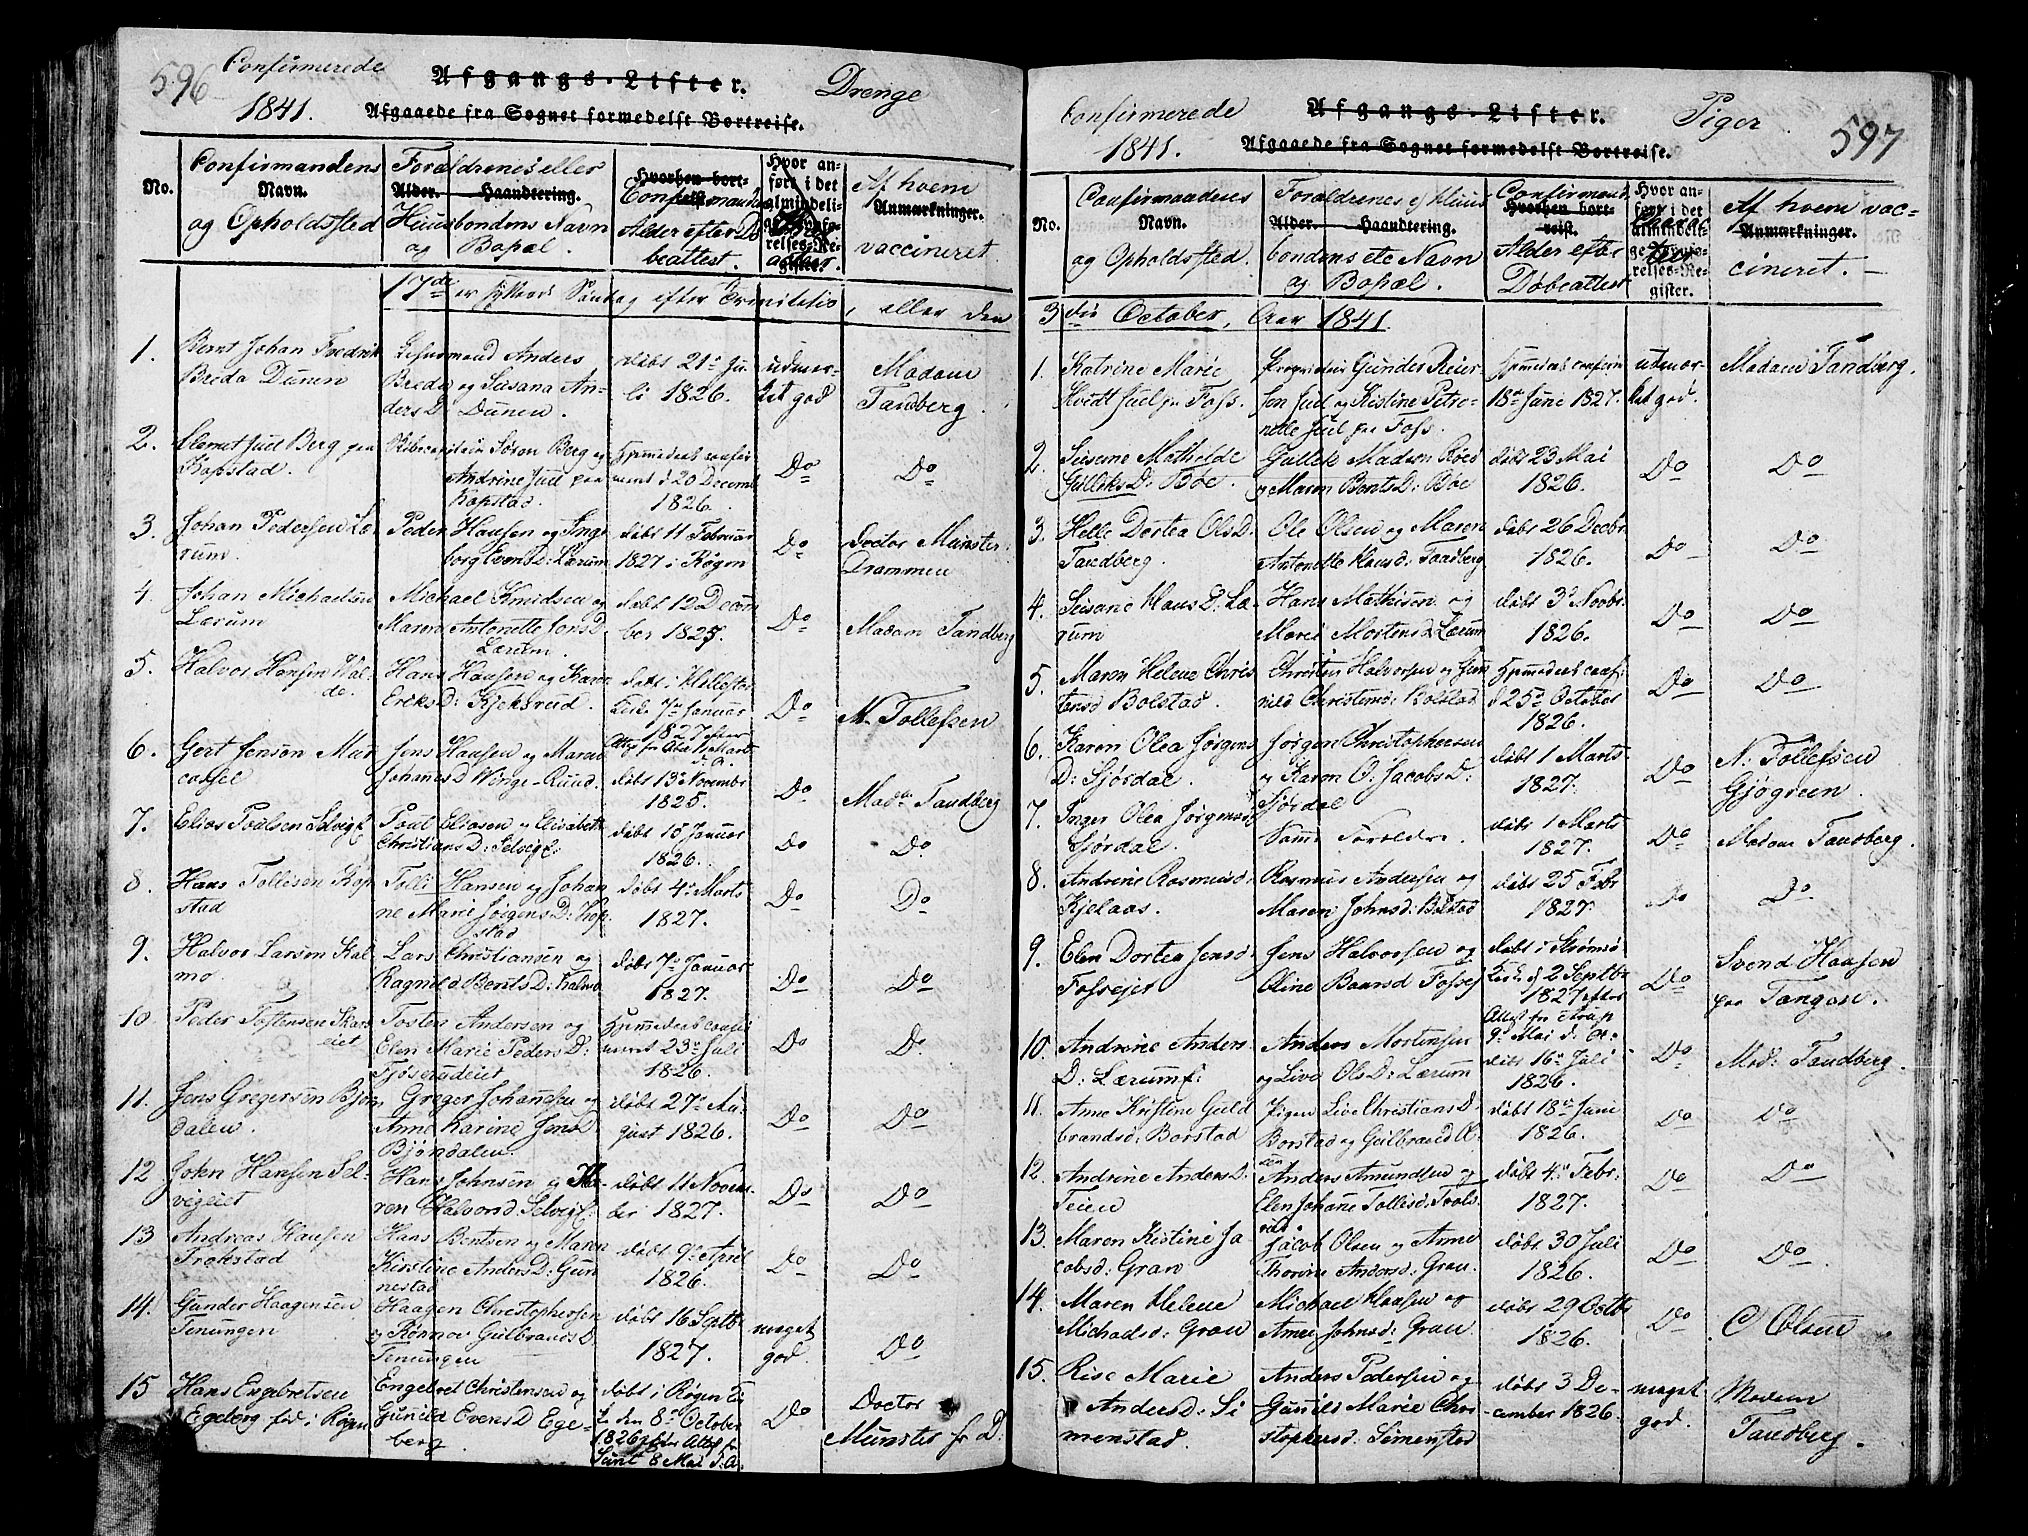 596
Confirmerede
1841.
Afgangs-Lister.
Afgaaede fra Sognet formedelst Bortreise.
Drenge
No.
Confirmandens
Navn.
og Opholdssted
Forældrenes eller
Alder. Haandtering.
Huusbondens Navn
og Bopæl.
Hvorhen bort-
reist
Alder efter
beattest.
Hvor an-
ført i det
almindeli-
relses-Re-
gister.
Af hvem
Anmærkninger.
vaccineret.
17de Søndag efter Trinitatis, eller den
1.
Bernt Johan Fredrik
Breda Dunen
Anders
Breda og Susana An-
ders D. Dunen.
døbt 21de Ju-
li 1826.
udmær-
ket god
Madam
Tandberg.
2.
Juel Berg paa
Kopstad.
Søren Berg og
Andrine Juel paa
Kopstad.
Hjemmedøbt
d 20 Decemb
1826.
Do
Do
3.
Johan Pedersen Læ-
rum.
Peder Hansen og Inge-
borg Evens D: Lærum
døbt 11 Februar
1827 i Røgen
Do
Doctor Munster
Drammen
4.
Johan Michaelsen
Lærum
Michael Knudsen og
Maren Antonette Jens D.
Lærum.
døbt 12 Decem-
ber 1825.
Do
Madam Tandberg
5.
Halvor Hansen
Hans Hansen og Karen
Eriks D: Kjeksrud.
døbt i
7de Januar
1827 efter
Do
M. Tollefsen
6.
Gert Jensen
Jens Hansen og Maren
Johannes D Ruud.
døbt 13de Novembr
1825.
Do
Madm Tandberg
7.
Elias Poulsen Selvig
Poul Eliasen og Elisabeth
Christians D: Selvig
døbt 15 Januar
1826.
Do
Do.
8.
Hans Tollefsen Kop-
stad
Hansen og Johan-
ne Marie Jørgens D: Kop-
stad
døbt 4de Marts
1827.
Do
Do
9.
Halvor Larsen Kal-
mo.
Lars Christiansen og
Ragnild Bents D: Kalmo
døbt 7de Januar
1827.
Do
Do
10.
Peder Tostensen
Tosten Andersen og
Elen Marie Peders D:
Hjemmedøbt
23de Juli
1826.
Do
Do.
11.
Jens Gregersen Bjøn-
dalen.
Greger Johansen og
Anne Karine Jens D
Bjøndalen.
døbt 27de Au-
gust 1826.
Do
Do
12
John Hansen Sel-
vigeiet
Hans Johnsen og Ka-
ren Halvorsd: Selvig.
døbt 11 Novem-
ber 1827.
Do
Do
13
Andreas Hansen
Trokstad
Hans Bentsen og Maren
Kirstine Anders D: Gun-
nestad
døbt 9de April
1826.
Do
Do
14.
Gunder Haagensen
Tenungen
Haagen Christophersen
og Rønnov Gulbrands D.
Tenungen
døbt 16 Septbr
1827.
meget
god.
Do
15
Hans Engebretsen
Egeberg født i Røgen
Engebret Christensen og
Gunild Evens D Ege-
berg.
døbt i Røgen
den 8de October
1826 efter Attest fr
Sunt 8 Mai d: A.
Do
Doctor
Munster fr D.
Confirmerede
1841.
Afgangs-Lister.
Afgaaede fra Sognet formedelst Bortreise.
Piger.
597
No.
Confirmandenes
Navn.
og Opholdssted.
Forældrenes ell Huus-
Alder. Haandtering.
bondens etc Navn
og Bopæl.
Confirmand
Hvorhen bort-
reist.
Alder efter
Døbeattest
Hvor an-
ført i det
almindeli-
relses-Re-
gister.
Af hvem vac-
Anmærkninger.
cineret.
3die October, Aar 1841.
1.
Katrine Marie
Juel paa Foss.
Proprietair Gunder Reier-
sen Juel og Kistine Petro-
nelle Juel paa Foss.
Hjemmedøbt
18de Juni 1827.
udmær-
ket god.
Madam Tandberg.
2.
Susane Mathilde
Gulliks D: Böe.
Gullik Madsen Röed
og Maren Bents D: Böe
døbt 23 Mai
1826.
Do
Do
3.
Helle Dortea Ols D:
Tandberg.
Ole Olsen og Maren
Antonette Hansd: Tandberg
døbt 26 Decbr
1826.
Do
Do
4.
Susane Hans D: Læ-
rum
Hans Mathisen og
Maren Mortens D: Lærum
døbt 3de Novbr.
1826.
Do
Do
5.
Maren Helene Chris-
tensd Bolstad.
Christen Halvorsen og Gun-
nild Christensd: Bolstad
Hjemmedøbt
d 25de October
1826.
Do
Do
6.
Karen Olea Jørgens
D: Sjørdal.
Jørgen Christophersen
og Karen O: Jacobs D:
Sjørdal
døbt 1 Marts
1827.
Do
N. Tollefsen
Gjøgreen.
7.
Inger Olea Jørgensd:
Sjørdal.
Samme Forældre.
døbt 1 Marts
1827.
Do
Madam Tandberg.
8.
Andrine Rasmusd:
Kjelaas.
Rasmus Andersen og
Maren Johnsd: Bolstad
døbt 25 Febr
1827.
Do
Do
9.
Elen Dortea Jensd.
Fossejer
Jens Halvorsen og
Oline Baarsd Fossej
døbt i Strømsø
Kirke d 2 Septbr
1827 efter
Attest fra
9de Mai d: A.
Do
Svend Hansen
paa Tangen.
10.
Andrine Anders
D: Lærum
Anders Mortensen
og Live Ols D: Lærum
døbt 16de Juli
1826.
Do
Mad: Tandberg.
11.
Anne Kristine Guld-
brandsd: Borstad
Pigen Live Christians D.
Borstad og Gulbrand
døbt 18de Juni
1826.
Do
Do
12.
Andrine Anders D.
Teien
Anders Amundsen og
Elen Johane Tollefsd:
døbt 4de Febr:
1827.
Do
Do
13.
Maren Kistine Ja-
cobsd: Gran
Jacob Olsen og Anne
Thorine Andersd: Gran.
døbt 30 Juli
1826.
Do
Do.
14.
Maren Helene
Michaelsd: Gran
Michael Hansen og
Anne Johnsd: Gran.
døbt 29 Octbr
1826.
Do
O Olsen
15.
Lise Marie
Anders D: Si-
menstad.
Anders Pedersen og
Gunild Marie Chri-
stophersd: Simenstad
døbt 3 De-
cember 1826.
meget
god.
Madam
Tandberg.